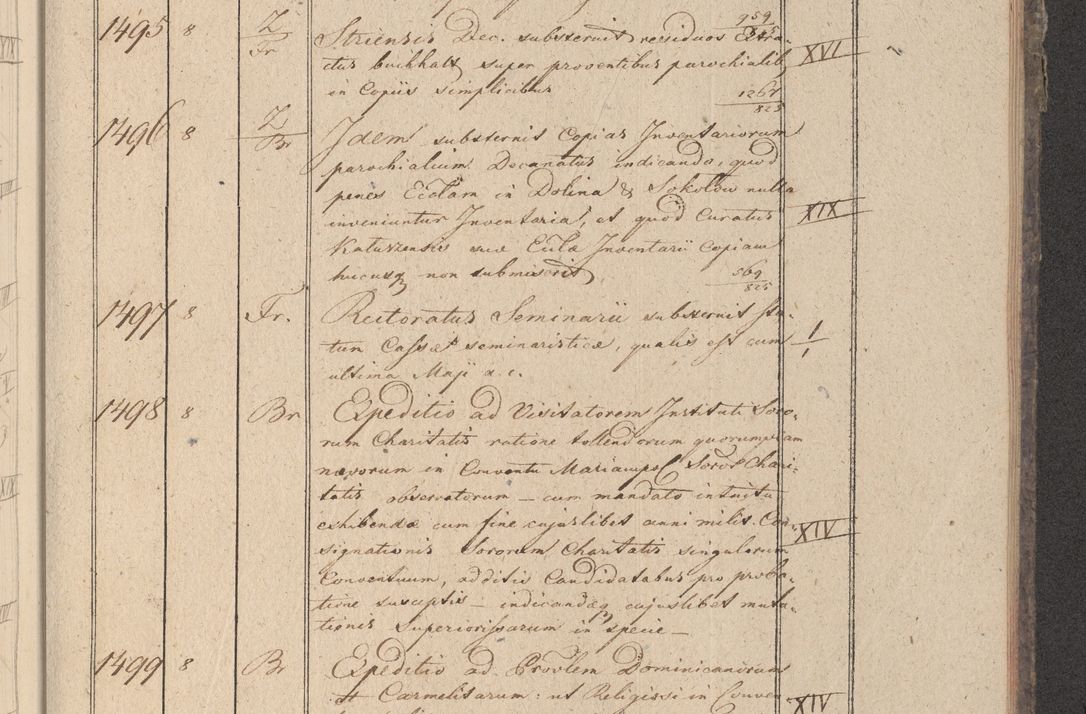 1495 8 Z/Fr Striensis Dec. substernit residuos Extra- 959/825
ctus buchhalt. super proventibus parochialib, XVI
in Copiis simplicibus 1267/825
1496 8 Z/Br Idem substernit Copias Inventariorum
parochialium Decanatus indicando, quod
penes Ecclam in Dolina & Sokolow nulla
inveniuntur Inventaria, et quod Curatus XIX
Katuszensis suae Eccla Inventarii Copiam
hucusq non submiserit 569/825
1497 8 Fr. Rectoratus Seminarii substernit sta-
tum Cassae seminaristicae, qualis est cum 1/1
ultima Maji a. c.
1498 8 Br Expeditio ad Visitatorem Instituti Soro-
rum Charitatis ratione tollendorum quorumpiam
naevorum in Conventu Mariampol Soror Chari-
tatis observatorum — cum mandato intuitu
exhibendae cum fine cujuslibet anni milit. Con- XIV
signationis Sororum Charitatis singulorum
Conventuum, additis Candidatabus pro proba-
tione susceptis — indicandaeq cujuslibet muta-
tionis Superiorissarum in specie —
1499 8 Br Expeditio ad Provlem Dominicanorum
et Carmelitarum: ut Religiosi in Conven- XIV